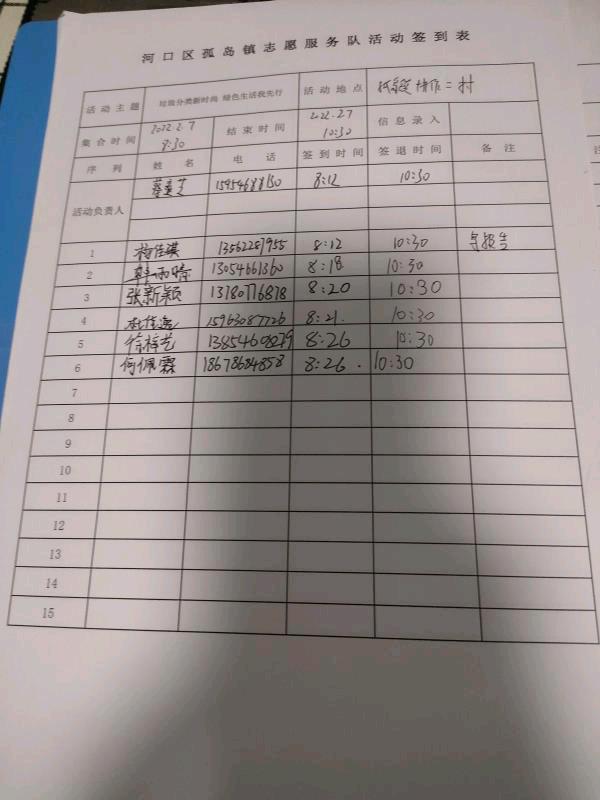 河口区孤岛镇志愿服务队活动签到表
活动主题 垃圾分类新时尚 绿色生活我先行 活动地点 二村
集合时间 2022.2.7 8:30 结束时间 2022.2.7 10:30 信息录入
序列 姓名 电话 签到时间 签退时间 备注
活动负责人 15954688130 8:12 10:30
1 杨佳琪 13562287955 8:12 10:30 写报告
2 13054661360 8:18 10:30
3 张新颖 13780776878 8:20 10:30
4 15963087726 8:21. 10:30
5 徐梓艺 8:26 10:30
6 何佩霖 18678684858 8:26. 10:30
7
8
9
10
11
12
13
14
15